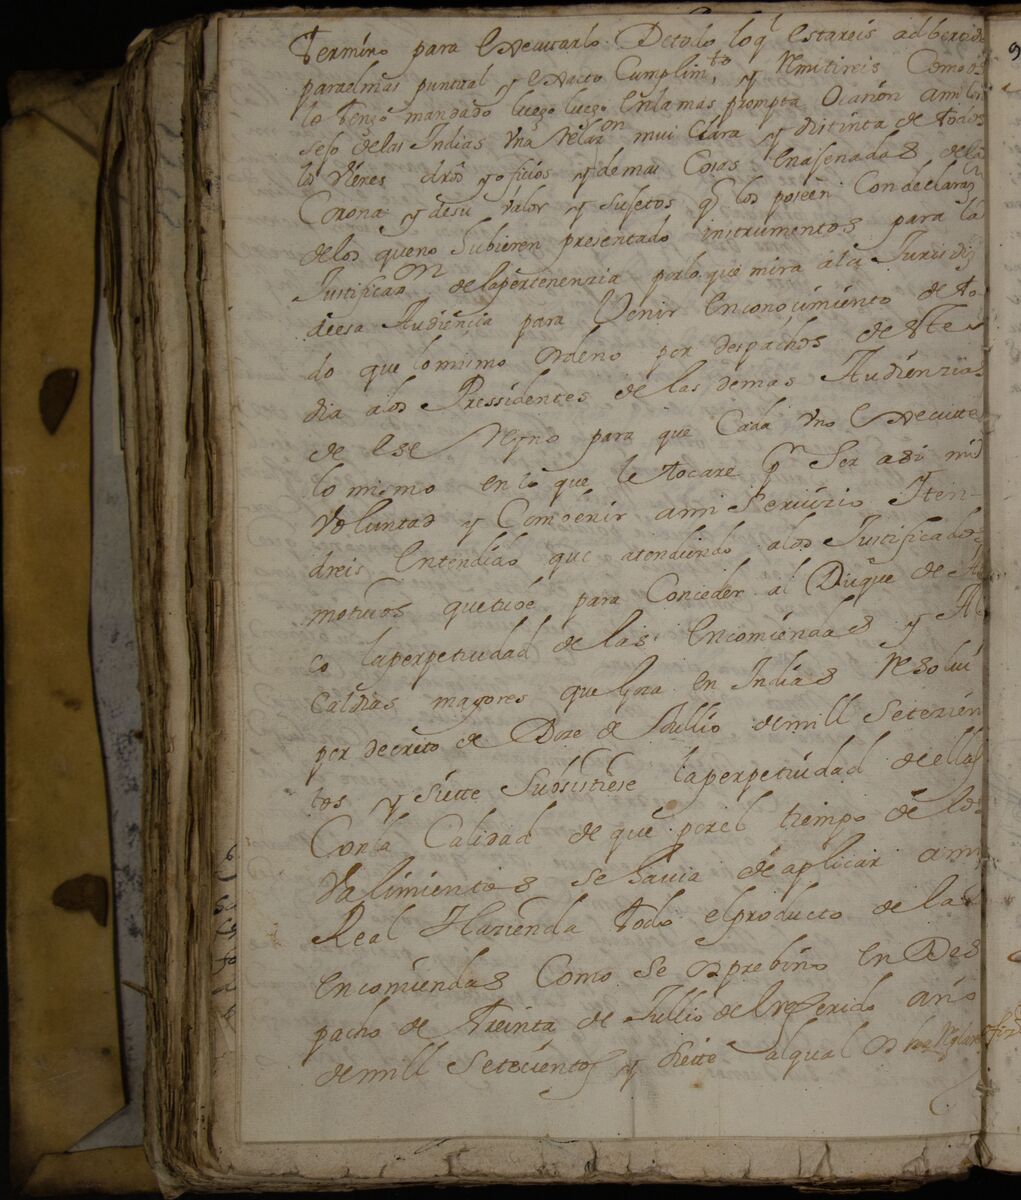 Termino para executarlo. De todo loq.e estareis adbertido
para el mas puntual y exacto Cumplim.to, y Remitireis Como os
lo tengo mandado luego luego en la mas prompta Ocasion a mi Con
sejo de las Indias Vna Relaz.on mui Clara y distinta de todos
los vienes drôs y oficios y demas Cosas enajenadas de la
Corona y de su valor y sujetos q.e los poseen Con declaraz.on
de los que no hubieren presentado instrumentos para la
Justificaz.on de la pertenenzia por lo que mira a la Jurisdiz.
de esa Audiencia para Venir en conocimiento de to
do que lo mismo ordeno por despachos de este
dia a los Pressidentes de las demas Audienzias
de ese Reyno para que Cada vno execute
lo mismo en lo que le tocare p.r Ser asi mi
Voluntad y Combenir a mi Servizio Iten
dreis entendido que atendiendo a los Justificados
motivos que tube para Conceder al Duque de Al
co la perpetuidad de las encomiendas y Al
Caldias mayores que goza en Indias Resolui
por decreto de Doze de Jullio de mill Setezien
tos y siette Subsistiese la perpetuidad de ellas
Con la Calidad de que por el tiempo de los
Valimientos se havia de aplicar a mi
Real Hazienda todo el producto de las
encomiendas Como se os prebino en Des
pacho de treinta de Jullio del referido año
de mill Setecientos y siette al qual